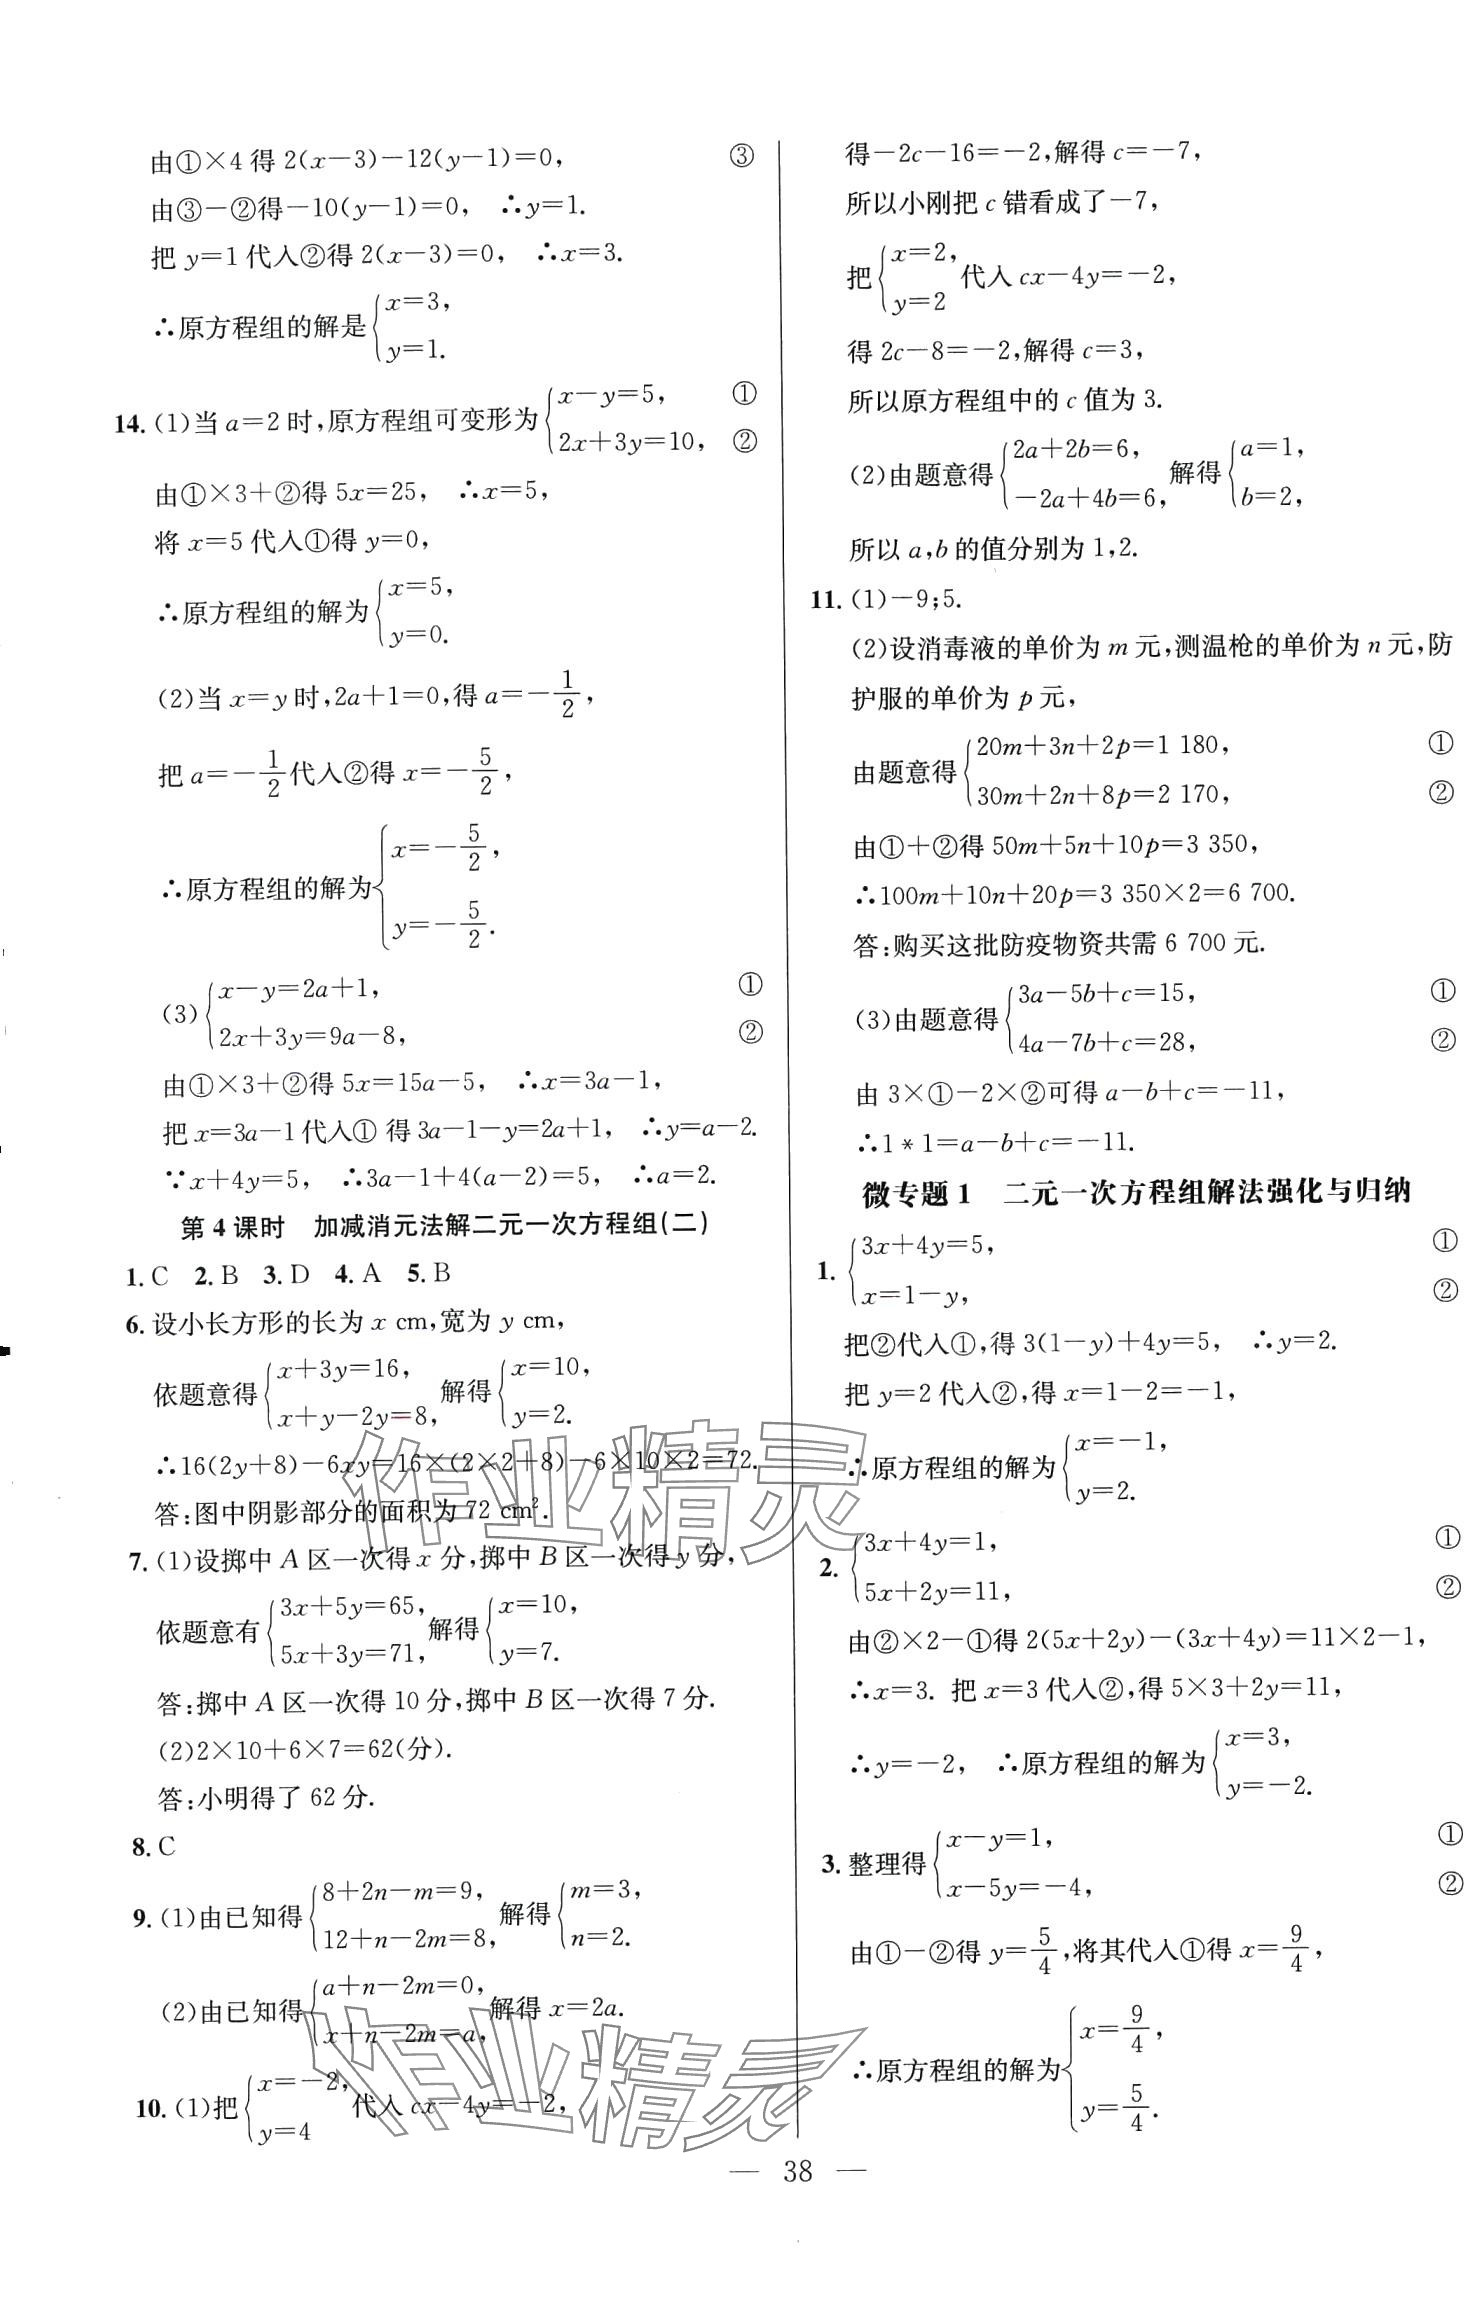 由①×4得2(x－3)－12(y－1)＝0, ③
由③－②得－10(y－1)＝0, ∴y＝1.
把y＝1代入②得2(x－3)＝0, ∴x＝3.
∴原方程组的解是{x＝3,
y＝1.
14. (1)当a＝2时,原方程组可变形为{x－y＝5, ①
2x＋3y＝10, ②
由①×3＋②得5x＝25, ∴x＝5,
将x＝5代入①得y＝0,
∴原方程组的解为{x＝5,
y＝0.
(2)当x＝y时,2a＋1＝0,得a＝－1/2,
把a＝－1/2代入②得x＝－5/2,
∴原方程组的解为{x＝－5/2,
y＝－5/2.
(3){x－y＝2a＋1, ①
2x＋3y＝9a－8, ②
由①×3＋②得5x＝15a－5, ∴x＝3a－1,
把x＝3a－1代入① 得3a－1－y＝2a＋1, ∴y＝a－2.
∵x＋4y＝5, ∴3a－1＋4(a－2)＝5, ∴a＝2.
第4课时 加减消元法解二元一次方程组(二)
1. C 2. B 3. D 4. A 5. B
6. 设小长方形的长为x cm,宽为y cm,
依题意得{x＋3y＝16,
x＋y－2y＝8, 解得{x＝10,
y＝2.
∴16(2y＋8)－6xy＝16×(2×2＋8)－6×10×2＝72.
答:图中阴影部分的面积为72 cm².
7. (1)设掷中A区一次得x分,掷中B区一次得y分,
依题意有{3x＋5y＝65,
5x＋3y＝71, 解得{x＝10,
y＝7.
答:掷中A区一次得10分,掷中B区一次得7分.
(2)2×10＋6×7＝62(分).
答:小明得了62分.
8. C
9. (1)由已知得{8＋2n－m＝9,
12＋n－2m＝8, 解得{m＝3,
n＝2.
(2)由已知得{a＋n－2m＝0,
x＋n－2m＝a, 解得x＝2a.
10. (1)把{x＝－2,
y＝4 代入cx－4y＝－2,
得－2c－16＝－2,解得c＝－7,
所以小刚把c错看成了－7,
把{x＝2,
y＝2 代入cx－4y＝－2,
得2c－8＝－2,解得c＝3,
所以原方程组中的c值为3.
(2)由题意得{2a＋2b＝6,
－2a＋4b＝6, 解得{a＝1,
b＝2,
所以a,b的值分别为1,2.
11. (1)－9;5.
(2)设消毒液的单价为m元,测温枪的单价为n元,防
护服的单价为p元,
由题意得{20m＋3n＋2p＝1 180, ①
30m＋2n＋8p＝2 170, ②
由①＋②得50m＋5n＋10p＝3 350,
∴100m＋10n＋20p＝3 350×2＝6 700.
答:购买这批防疫物资共需6 700元.
(3)由题意得{3a－5b＋c＝15, ①
4a－7b＋c＝28, ②
由3×①－2×②可得a－b＋c＝－11,
∴1＊1＝a－b＋c＝－11.
微专题1 二元一次方程组解法强化与归纳
1. {3x＋4y＝5, ①
x＝1－y, ②
把②代入①,得3(1－y)＋4y＝5, ∴y＝2.
把y＝2代入②,得x＝1－2＝－1,
∴原方程组的解为{x＝－1,
y＝2.
2. {3x＋4y＝1, ①
5x＋2y＝11, ②
由②×2－①得2(5x＋2y)－(3x＋4y)＝11×2－1,
∴x＝3. 把x＝3代入②,得5×3＋2y＝11,
∴y＝－2, ∴原方程组的解为{x＝3,
y＝－2.
3. 整理得{x－y＝1, ①
x－5y＝－4, ②
由①－②得y＝5/4,将其代入①得x＝9/4,
∴原方程组的解为{x＝9/4,
y＝5/4.
作业精灵
作业精灵
— 38 —